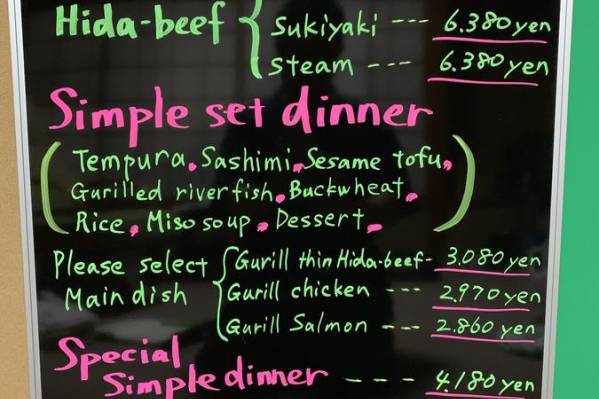 Hida-beef { Sukiyaki --- 6.380 yen
steam --- 6.380 yen
Simple set dinner
( Tempura, Sashimi, Sesame tofu,
Gurilled river fish, Buckwheat,
Rice, Miso soup, Dessert, )
Please select { Gurill thin Hida-beef - 3.080 yen
Main dish Gurill chicken --- 2.970 yen
Gurill Salmon --- 2.860 yen
Special
Simple dinner --- 4.180 yen